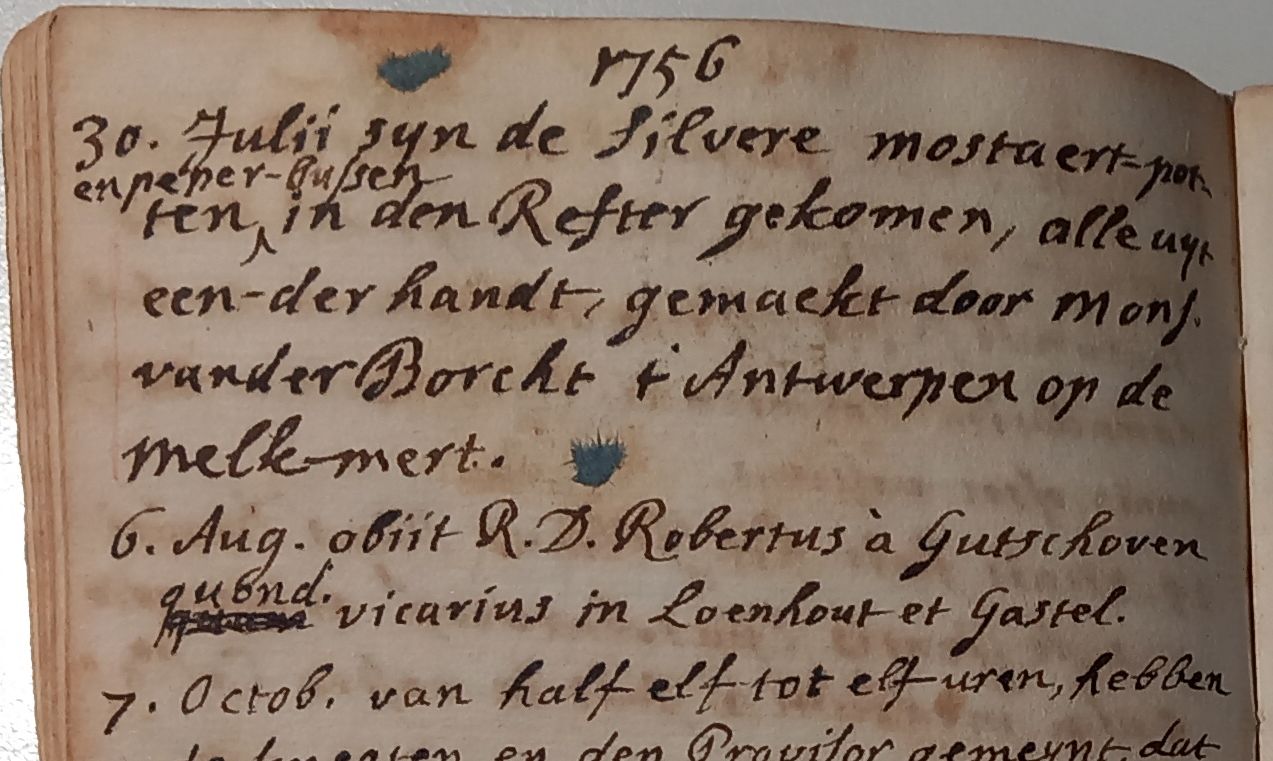 1756
30. Julii syn de silvere mostaert-pot-
en peper-bussen
ten, in den Refter gekomen, alle uyt
een-der handt, gemaekt door Mons.
vander Borcht t Antwerpen op de
Melk-mert.
6. Aug. obiit R.D. Robertus à Gutschoven
quond.
vicarius in Loenhout et Gastel.
7. Octob. van half elf tot elf uren, hebben
knegten en den Provisor gemeynt, dat